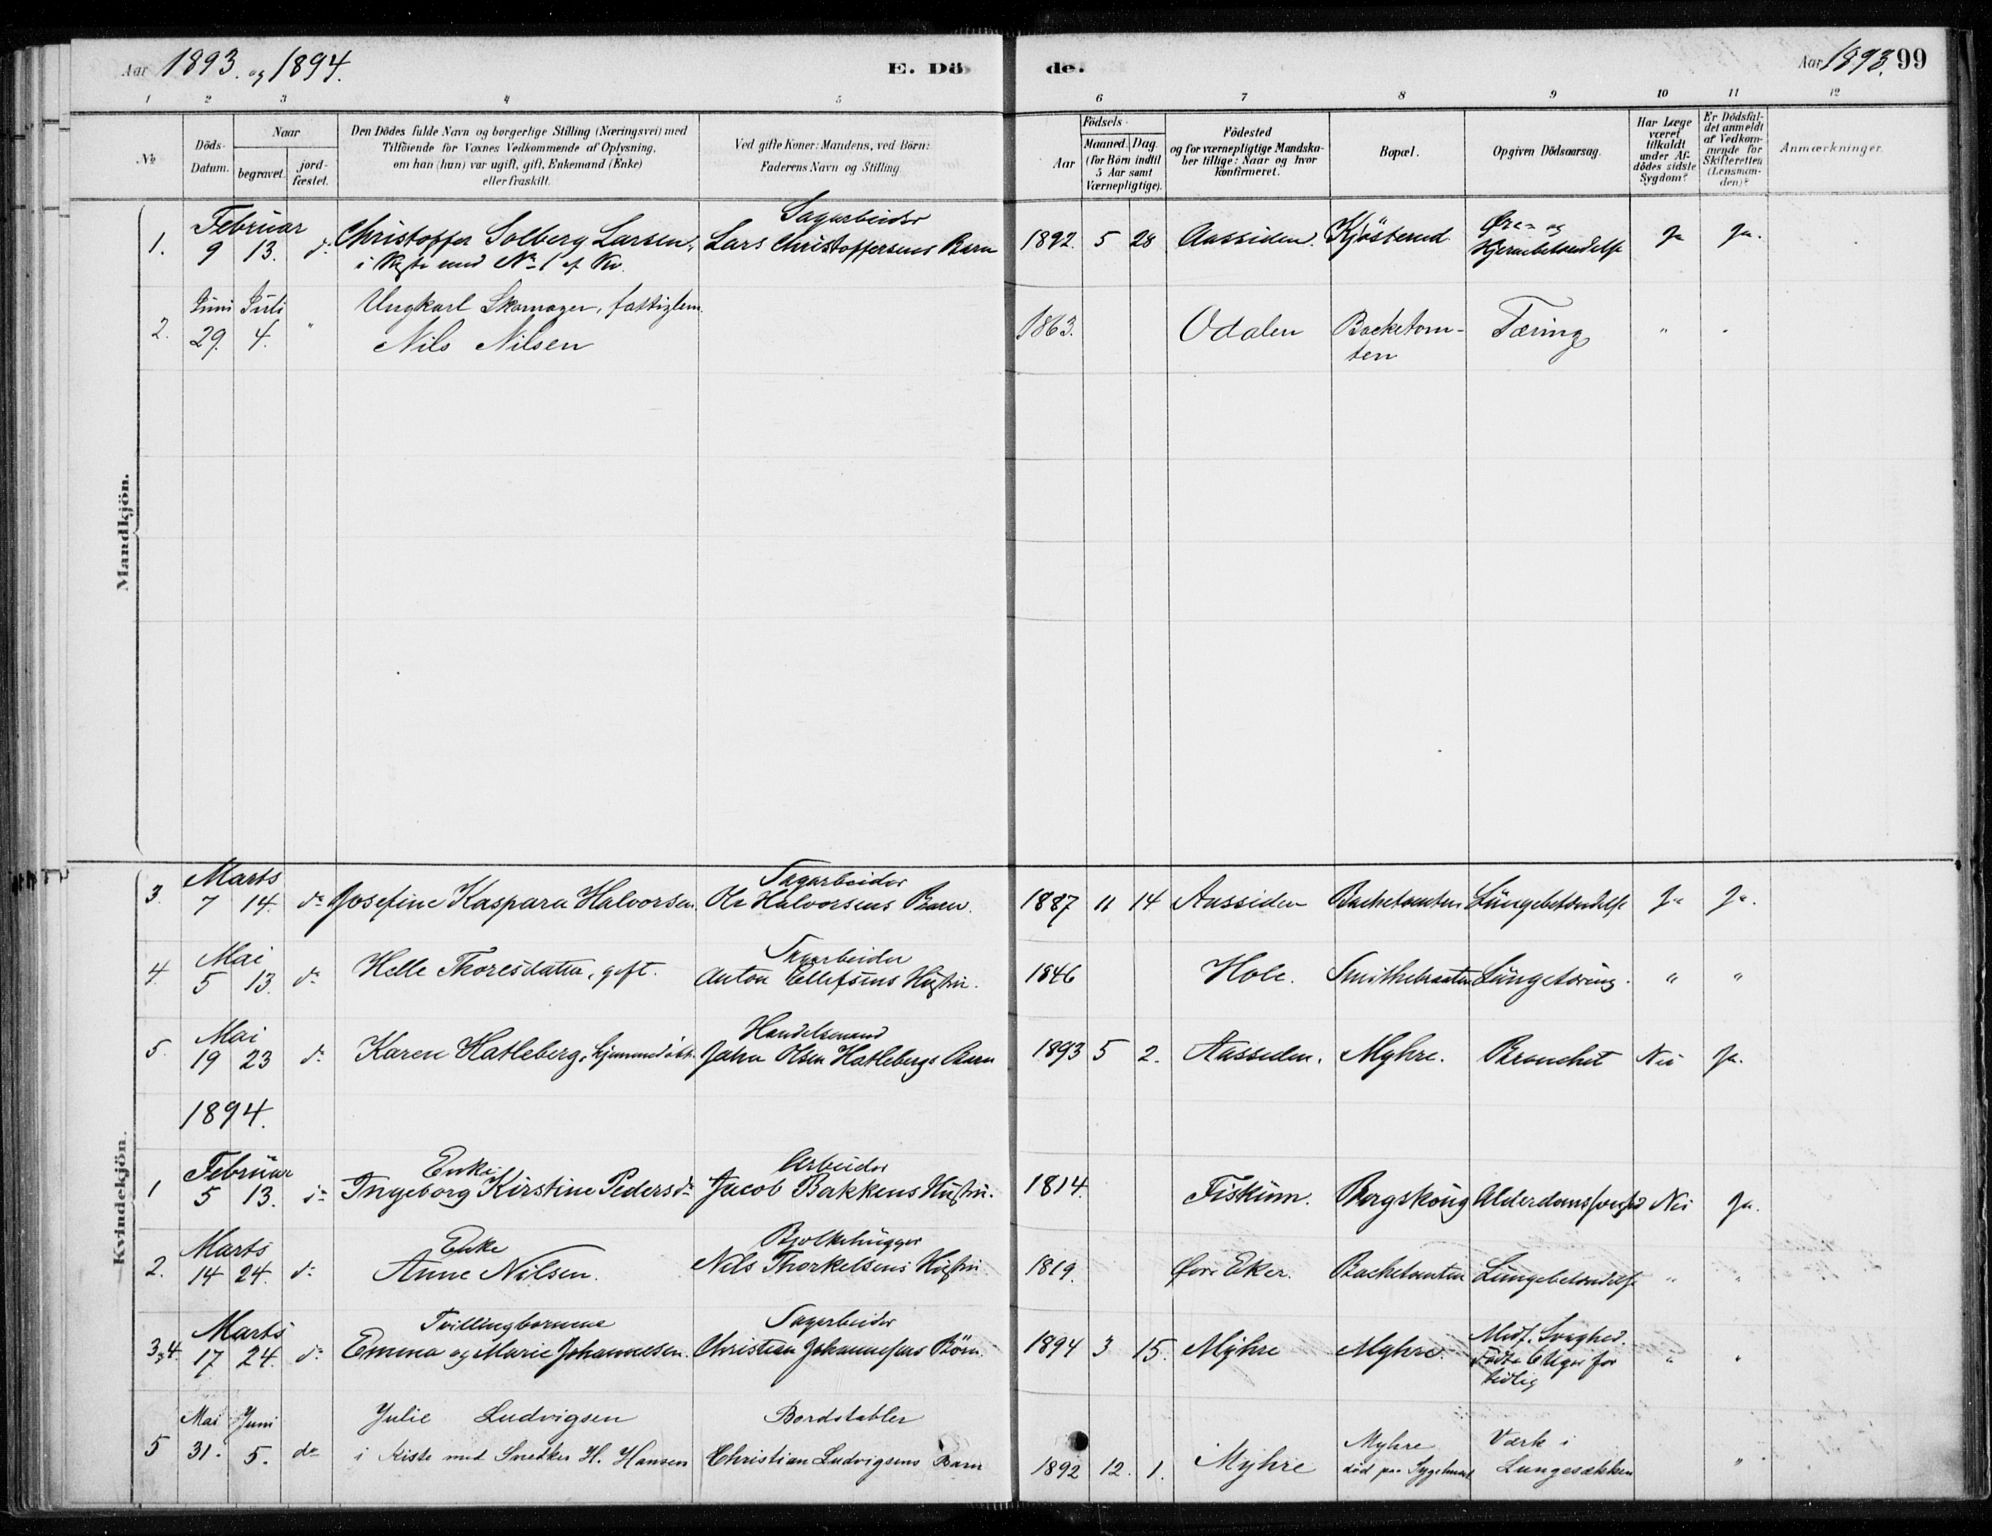 Aar 1893. og 1894.
E. Dö de.
Aar 1893. 99
1 2 3 4 5 6 7 8 9 10 11 12
No
Döds-Datum.
Naar
begravet.
jord-fæstet.
Den Dödes fulde Navn og borgerlige Stilling (Næringsvei) med
Tilföiende for Voxnes Vedkommende af Oplysning,
om han (hun) var ugift, gift, Enkemand (Enke)
eller fraskilt.
Ved gifte Koner: Mandens, ved Börn:
Faderens Navn og Stilling.
Födsels-
Aar
Maaned. Dag.
(for Börn indtil
5 Aar samt
Værnepligtige).
Födested
og for værnepligtige Mandska-
ber tillige: Naar og hvor
konfirmeret.
Bopæl.
Opgiven Dödsaarsag.
Har Læge
været
tilkaldt
under Af-
dödes sidste
Sygdom?
Er Dödsfal-
det anmeldt
af Vedkom-
mende for
Skifteretten
(Lensman-
den)?
Anmærkninger.
Mandkjön.
Februar Sagarbeider
1. 9 13. do Christoffer Solberg Larsen, Lars Christoffersens Barn 1892. 5 28 Aassiden. Kjösterud Øre- og
i Kiste med No 1 af Kv. Hjernebetændelse Ja Ja.
Juni Juli Ungkarl Skomager, fattiglem.
2. 29. 4. " Nils Nilsen 1863. Odalen Backetom-
ten Tæring " "
Kvindekjön.
Marts Sagarbeider
3. 7 14. do Josefine Kaspara Halvorsen. Ole Halvorsens Barn. 1887 11 14 Aassiden Backetomten Lungebetændelse Ja Ja.
Mai Sagarbeider
4. 5 13. do Helle Thoresdatter, gift. Anton Ellefsens Hustru. 1846 Hole. Smithebraaten Lungetæring. " "
Mai Handelsmand
5. 19 23 do Karen Hatleberg, hjemmedöbt. John Olsen Hatlebergs Barn 1893 5 2. Aassiden. Myhre. Bronchit Nei Ja.
1894.
Februar Enke Arbeider
1 5 13. do Ingeborg Kirstine Pedersdr Jacob Bakkens Hustru. 1814. Fiskum. Borgskoug Alderdomssvaghed Nei Ja.
Marts Enke Bjelkehugger
2. 14 24. do Anne Nilsen. Nils Thorkelsens Hustru 1819. Øvre Eker. Backetomten Lungebetændelse " "
Marts Tvillingbørnene Sagarbeider
3 og 4. 17 24. do Emma og Marie Johannesen. Christian Johannesens Börn. 1894 3 15. Myhre Myhre. Medf. Svaghed.
Födte 6 Uger for
tidlig " "
Mai Juni Julie Ludvigsen Bordstabler
5 31. 5. do i Kiste med Snedker H. Hansen Christian Ludvigsens Barn 1892 12. 1. Myhre Myhre
död paa Sygehuset Værk i
Lungesækken "